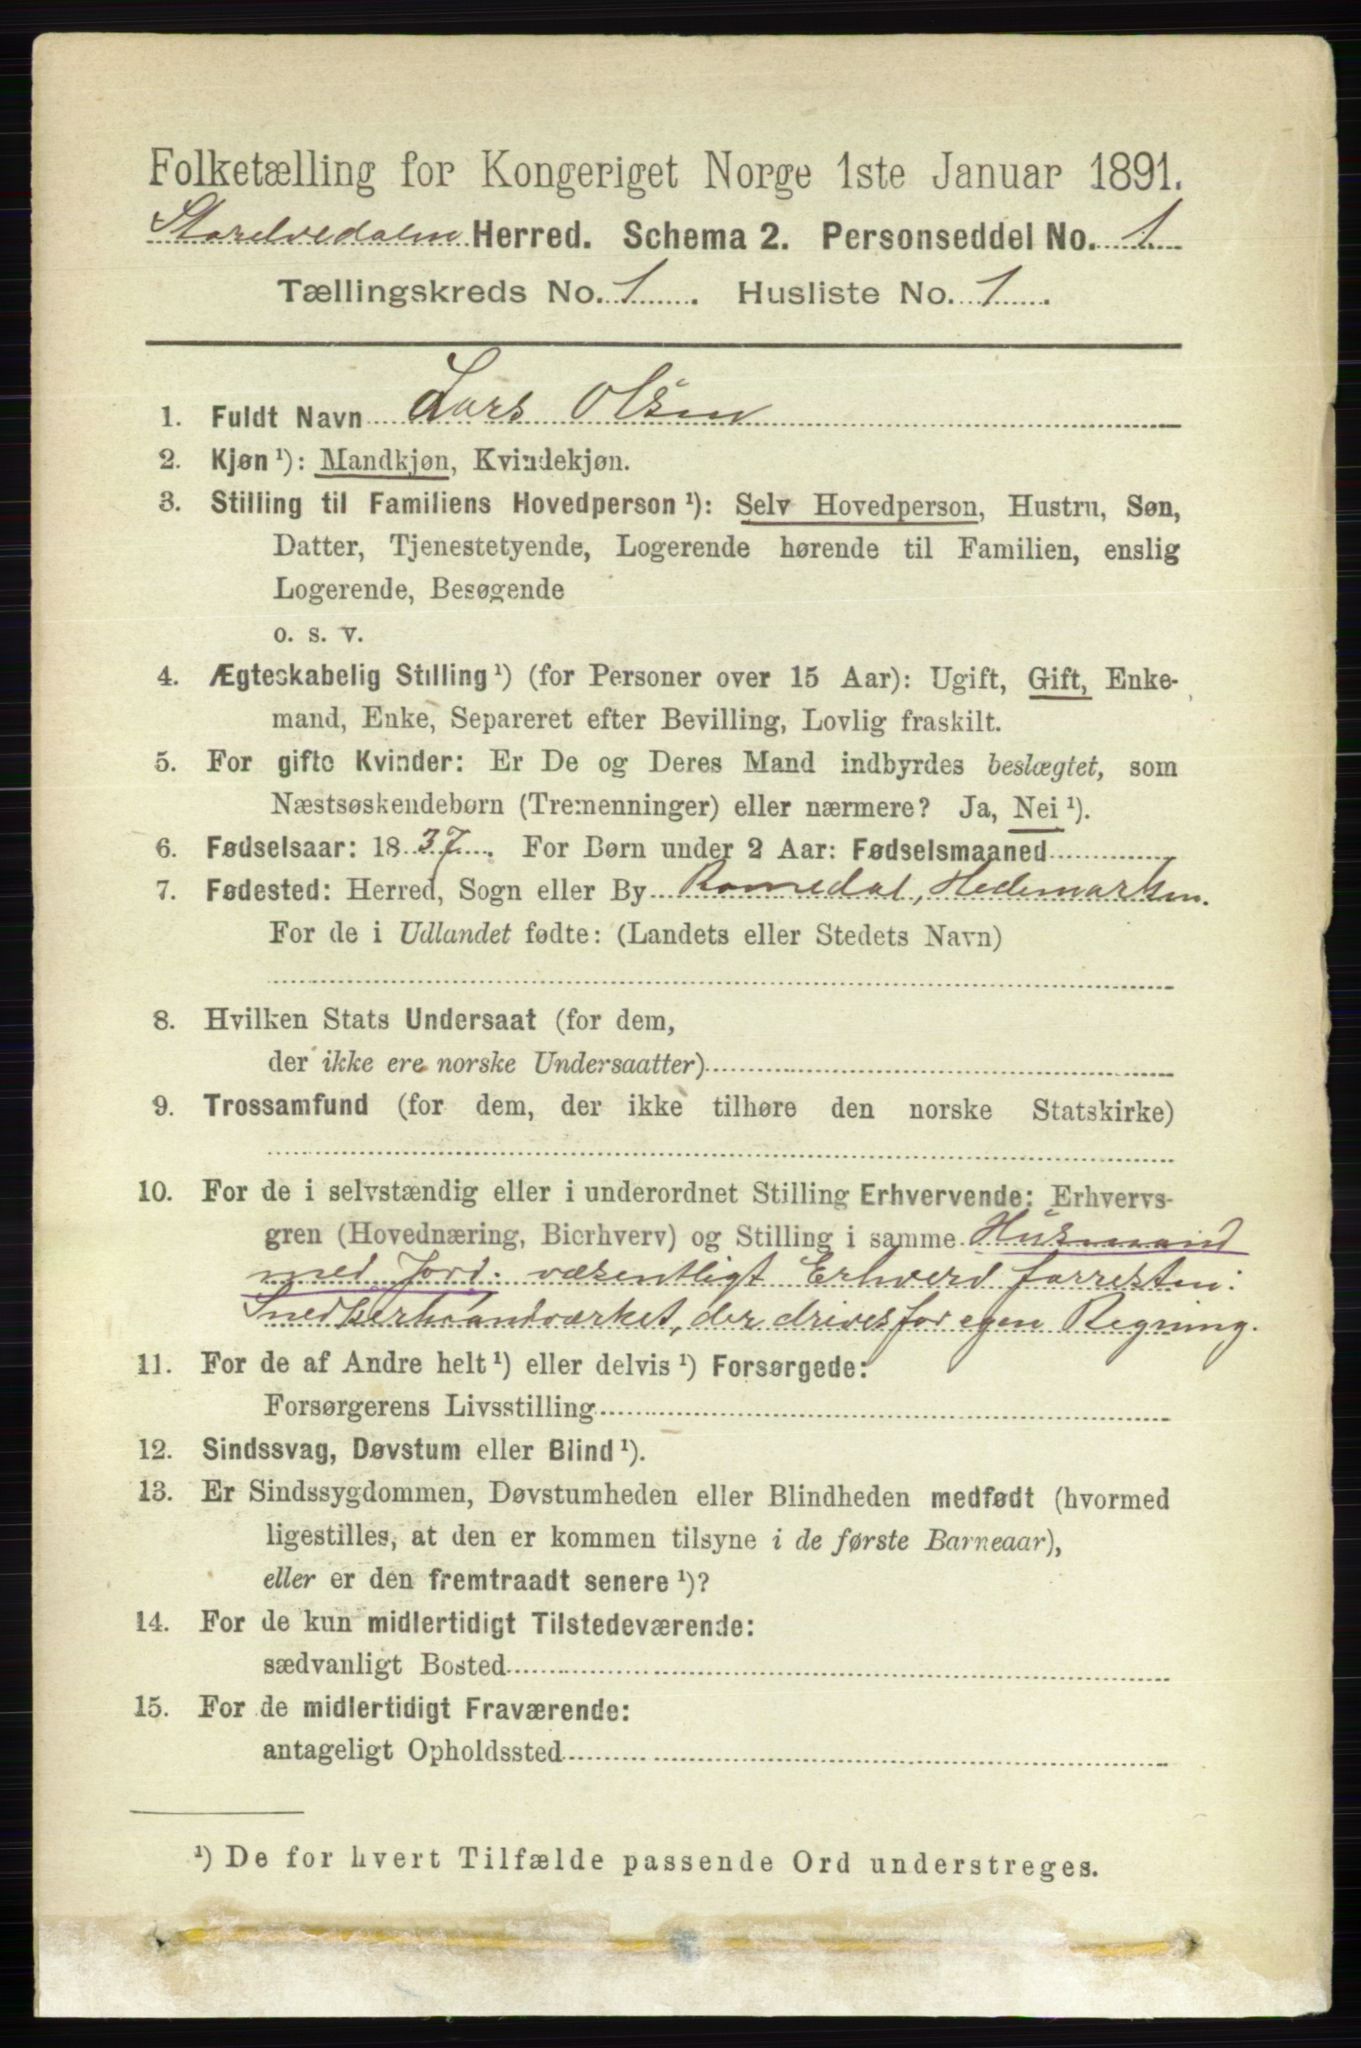 Folketælling for Kongeriget Norge 1ste Januar 1891.
Storelvedalen Herred. Schema 2. Personseddel No. 1
Tællingskreds No. 1. Husliste No. 1.
1. Fuldt Navn Lars Olsen
2. Kjøn ¹): Mandkjøn, Kvindekjøn.
3. Stilling til Familiens Hovedperson ¹): Selv Hovedperson, Hustru, Søn,
Datter, Tjenestetyende, Logerende hørende til Familien, enslig
Logerende, Besøgende
o. s. v.
4. Ægteskabelig Stilling ¹) (for Personer over 15 Aar): Ugift, Gift, Enke-
mand, Enke, Separeret efter Bevilling, Lovlig fraskilt.
5. For gifte Kvinder: Er De og Deres Mand indbyrdes beslægtet, som
Næstsøskendebørn (Tremenninger) eller nærmere? Ja, Nei ¹).
6. Fødselsaar: 1837. For Børn under 2 Aar: Fødselsmaaned
7. Fødested: Herred, Sogn eller By Romedal, Hedemarken.
For de i Udlandet fødte: (Landets eller Stedets Navn)
8. Hvilken Stats Undersaat (for dem,
der ikke ere norske Undersaatter)
9. Trossamfund (for dem, der ikke tilhøre den norske Statskirke)
10. For de i selvstændig eller i underordnet Stilling Erhvervende: Erhvervs-
gren (Hovednæring, Bierhverv) og Stilling i samme Husmand
med Jord. væsentligt Erhverv forresten:
Snedkerhaandværket, der drives for egen Regning.
11. For de af Andre helt ¹) eller delvis ¹) Forsørgede:
Forsørgerens Livsstilling
12. Sindssvag, Døvstum eller Blind ¹).
13. Er Sindssygdommen, Døvstumheden eller Blindheden medfødt (hvormed
ligestilles, at den er kommen tilsyne i de første Barneaar),
eller er den fremtraadt senere ¹)?
14. For de kun midlertidigt Tilstedeværende:
sædvanligt Bosted
15. For de midlertidigt Fraværende:
antageligt Opholdssted
¹) De for hvert Tilfælde passende Ord understreges.